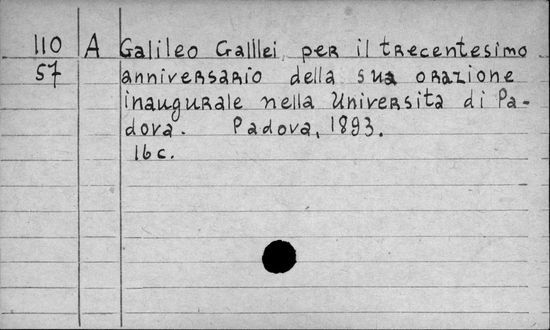 110 A Galileo Galilei per il trecentesimo
57 anniversario della sua orazione
inaugurale nella Universita di Pa-
dova. Padova, 1893.
16 c.